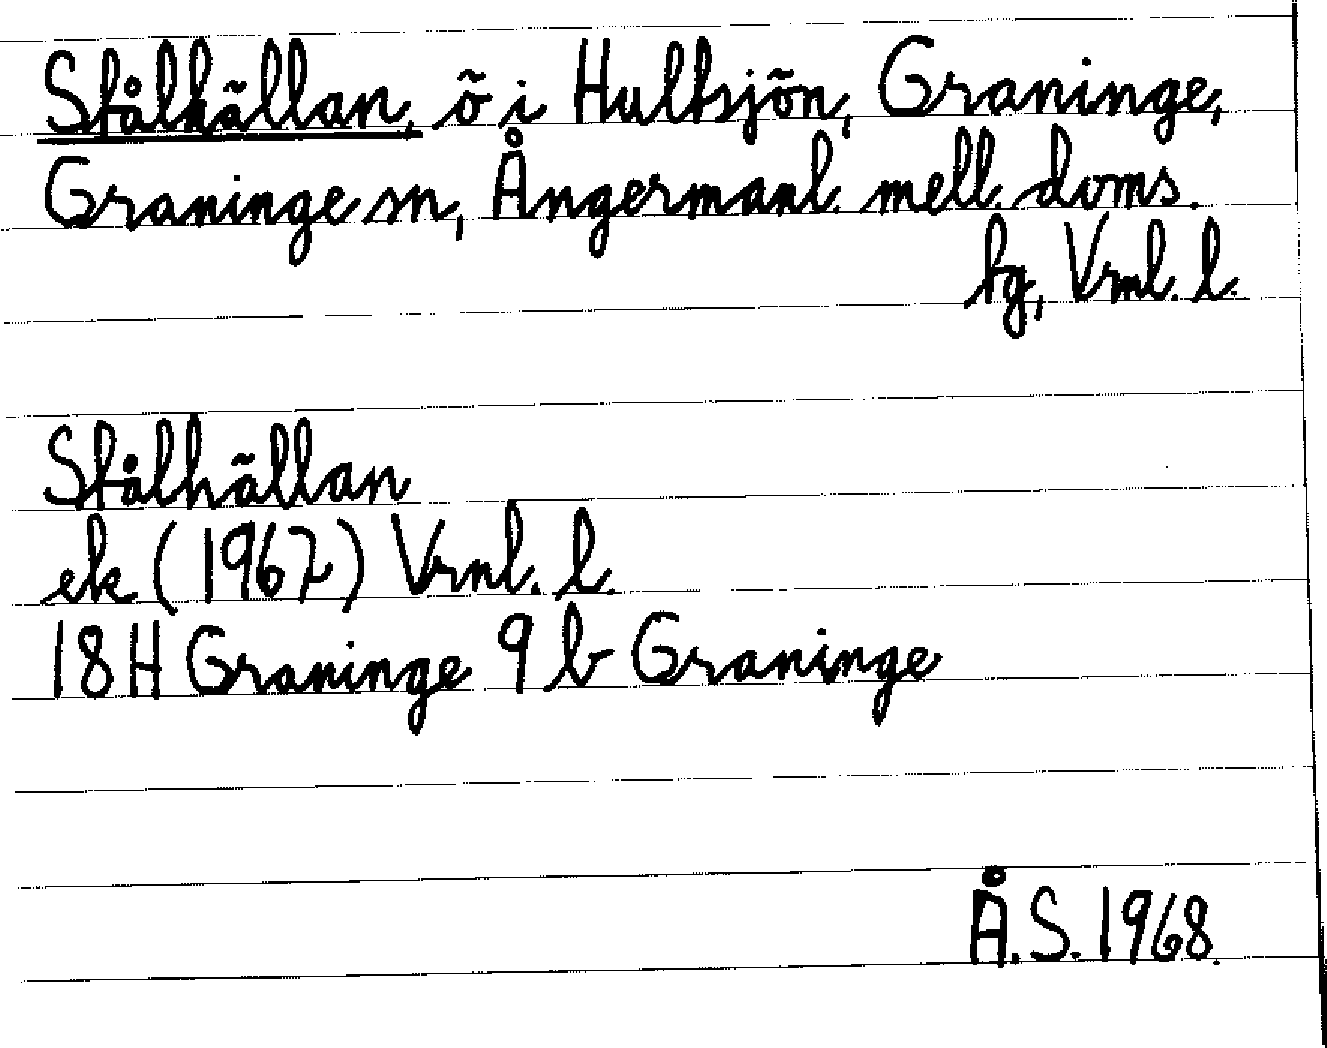 Stålhällan, ö i Hultsjön, Graninge,
Graninge sn, Ångermanl. mell. doms.
tg, Vrnl. l.
Stålhällan
ek (1967) Vrnl. l.
18 H Graninge 9 b Graninge
Å.S. 1968.